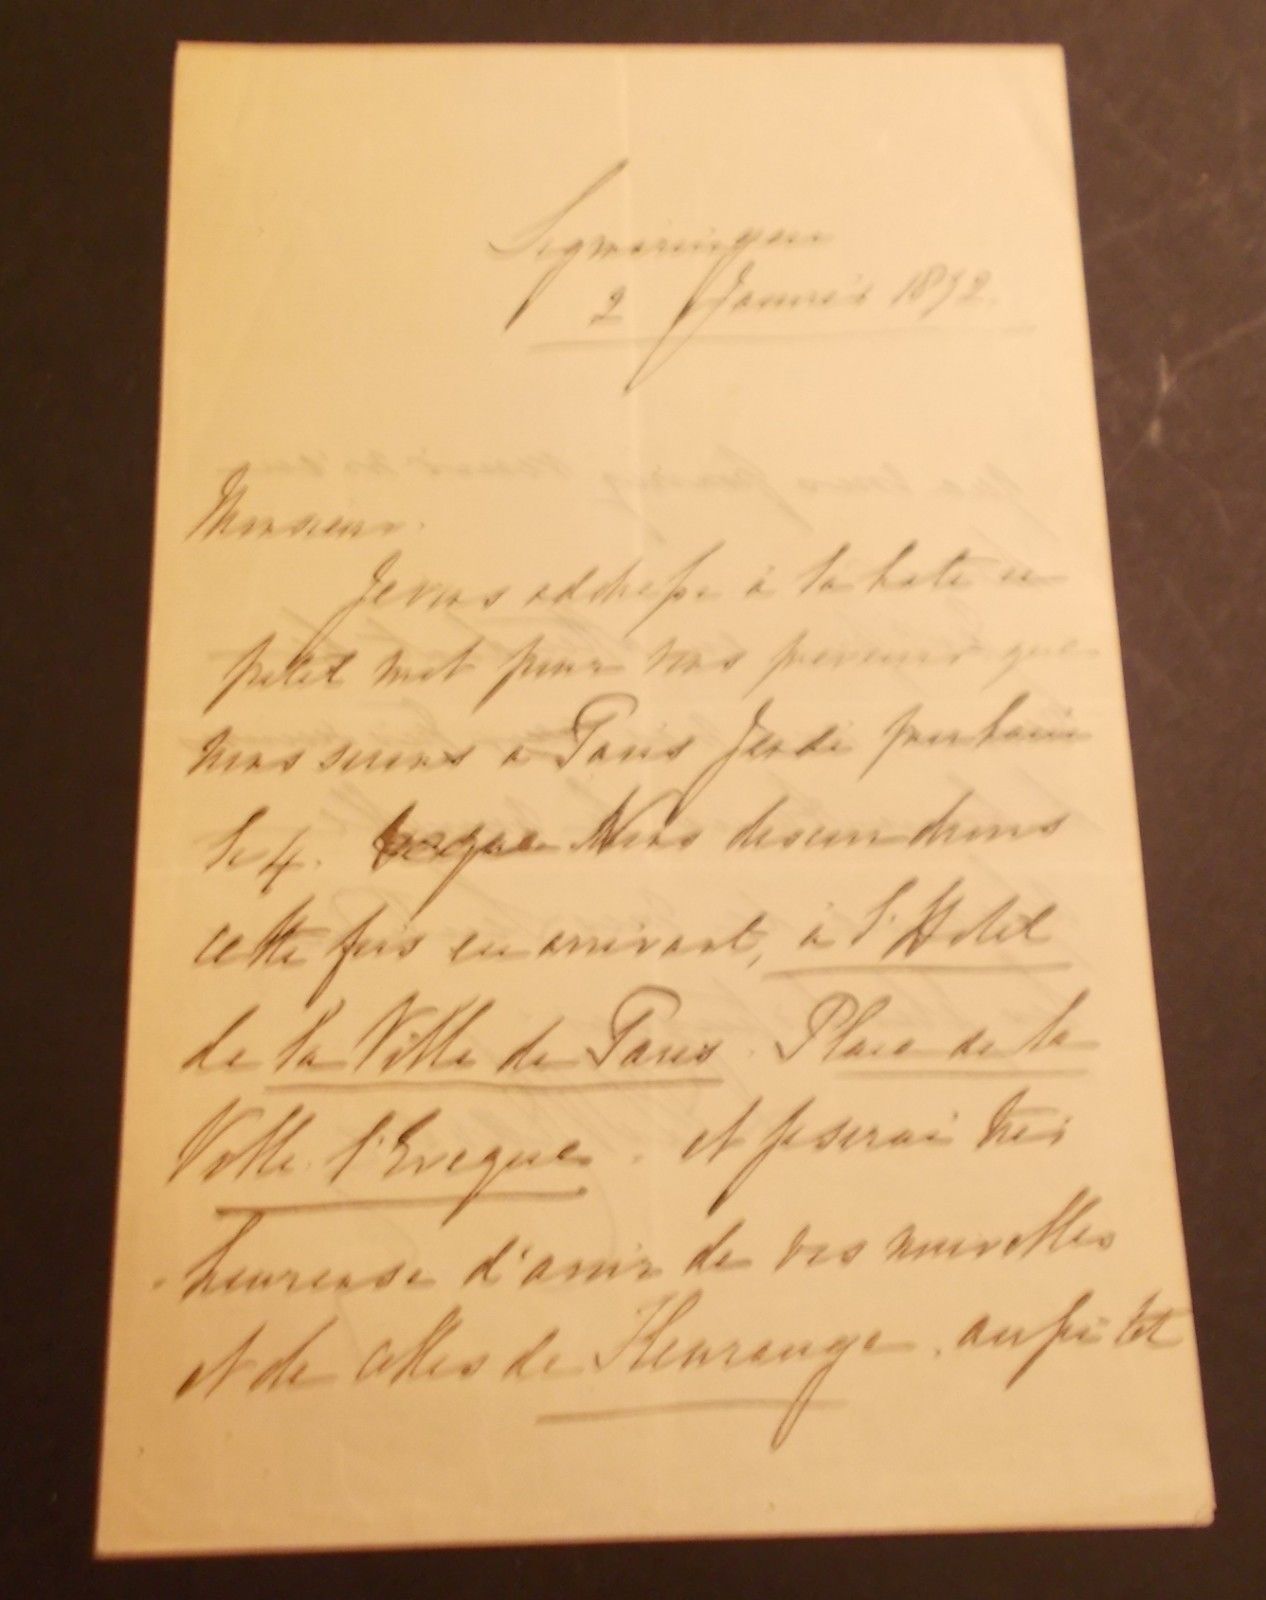 Sigmaringen
2 Janvier 1872.
Monsieur.
Je vous addresse à la hate ce
petit mot pour vous prevenir que
nous serons a Paris Jeudi prochain
le 4. Nous descendrons
cette fois en arrivant, à l'Hotel
de la Ville de Paris. Place de la
Ville l'Eveque. et je serai très
heureuse d'avoir de vos nouvelles
et de celles de aussi tot